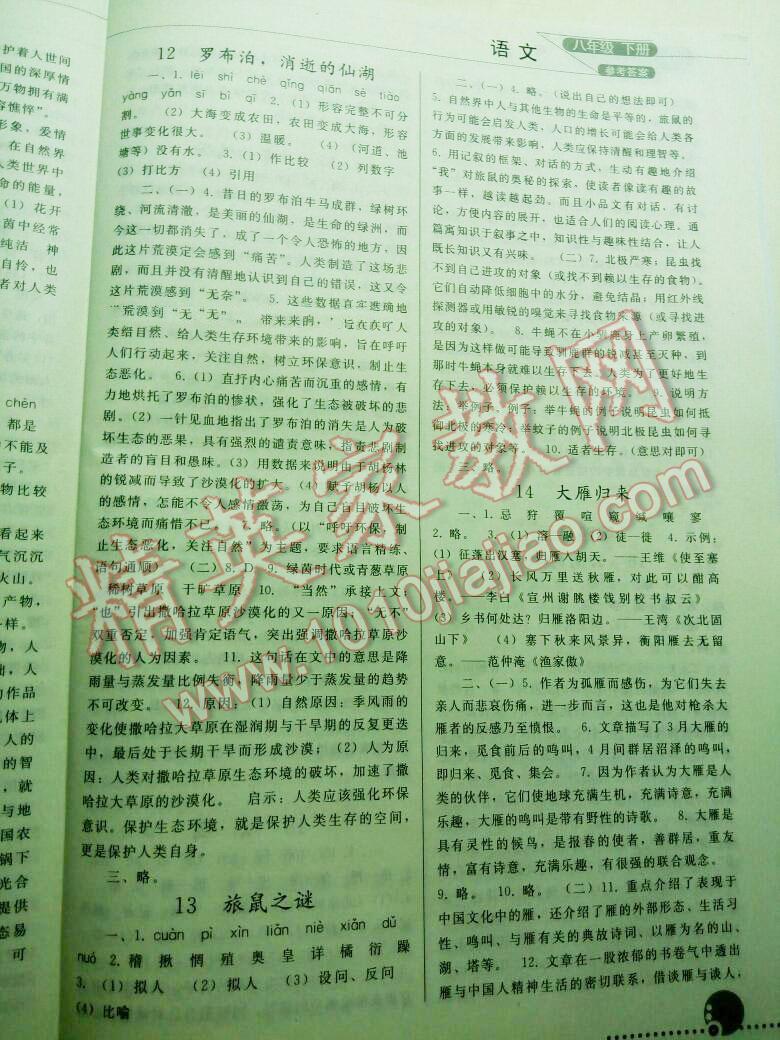 语文 八年级 下册
参考答案
护着人世间
国的深厚情
万物拥有满
容憔悴”。
形象，爱情
在自然界
人类世界中
命的能量，
(1) 花开
茵中经常
纯洁 神
自怜，也
者对人类
chèn
都是
不能及
子。
物比较
看起来
气沉沉
火山。
产物，
一样。
的作品
人的
的智
就
与地
国农
锅下
光合
提供
态易
可
12 罗布泊，消逝的仙湖
一、1. lěi shì chè qīng qiān sè tiào
yàng yǎn sī bì qì 2. (1) 形容完整不可分
割。 (2) 大海变成农田，农田变成大海，形容
世事变化很大。 (3) 温暖。 (4) (河道、池
塘等) 没有水。 3. (1) 作比较 (2) 列数字
(3) 打比方 (4) 引用
二、(一) 4. 昔日的罗布泊牛马成群，绿树环
绕、河流清澈，是美丽的仙湖、是生命的绿洲，而
今这一切都消失了，成了一个令人恐怖的地方，因
此这片荒漠定会感到“痛苦”。人类制造了这场悲
剧，而且并没有清醒地认识到自己的错误，这又令
这片荒漠感到“无奈”。 5. 这些数据真实准确地
荒漠到“无 带来来的，旨在在吓人
类给自然、给人类生存环境带来的影响，旨在呼吁
人们行动起来，关注自然，树立环保意识，制止生
态恶化。 6. (1) 直抒内心痛苦而沉重的感情，有
力地烘托了罗布泊的惨状，强化了生态被破坏的悲
剧。(2) 一针见血地指出了罗布泊的消失是人为破
坏生态的恶果，具有强烈的谴责意味，指责悲剧制
造者的盲目和愚昧。(3) 用数据来说明由于胡杨林
的锐减而导致了沙漠化的扩大。(4) 赋予胡杨以人
的感情，怎能不令人感情激荡，为自己未能保住生
态环境而痛惜不已。 7. 略。(以“呼吁环保，制
止生态恶化，关注自然”为主题，要求语言精练、
语句通顺) (二) 8. D 9. 绿茵时代或青葱草原
稀树草原 干旷草原 10. “当然”承接上文；
“也”引出撒哈拉草原沙漠化的又一原因；“无不”
双重否定，加强肯定语气，突出强调撒哈拉草原沙
漠化的人为因素。 11. 这句话在文中的意思是降
雨量与蒸发量比例失衡，降雨量少于蒸发量的趋势
不可改变。 12. 原因：(1) 自然原因：季风雨的
变化使撒哈拉大草原在湿润期与干旱期的反复更迭
中，最后处于长期干旱而形成沙漠；(2) 人为原
因：人类对撒哈拉草原生态环境的破坏，加速了撒
哈拉大草原的沙漠化。 启示：人类应该强化环保
意识。保护生态环境，就是保护人类生存的空间，
更是保护人类自身。
三、略。
13 旅鼠之谜
一、1. cuàn pì xìn liǎn niè xiǎn dǔ
nuó 2. 稽 揪 惘 殖 奥 皇 详 橘 衍 躁
3. (1) 拟人 (2) 拟人 (3) 设问、反问
(4) 比喻
二、(一) 4. 略。(说出自己的想法即可)
5. 自然界中人与其他生物的生命是平等的，旅鼠的
行为可能会启发人类，人口的增长可能会给人类各
方面的发展带来影响，人类应保持清醒和理智等。
6. 用记叙的框架、对话的方式，生动有趣地介绍
“我”对旅鼠的奥秘的探索，使读者像读有趣的故
事一样，越读越起劲。而且小品文有对话，有讨
论，方便内容的展开，也适合人们的阅读心理。通
篇寓知识于叙事之中，知识性与趣味性结合，让人
既长知识又有兴味。 (二) 7. 北极严寒；昆虫找
不到自己进攻的对象 (或找不到赖以生存的食物)。
它们自动降低细胞中的水分，避免结晶；用红外线
探测器或用敏锐的嗅觉来寻找食物来源 (或寻找进
攻的对象)。 8. 牛蝇不在小驯鹿身上产卵繁殖，
是因为这样做可能导致驯鹿群的锐减甚至灭种，到
那时牛蝇本身就难以生存了。人类为了更好地生
存下去，必须保护赖以生存的环境。 9. 说明方
法：举例子。例子：举牛蝇的例子说明昆虫如何抵
御北极的寒冷；举蚊子的例子说明北极昆虫如何寻
找进攻的对象等。 10. 适者生存。(意思对即可)
三、略。
14 大雁归来
一、1. 忌 狩 覆 喧 窥 缄 嚷 寥
2. 略。 3. (1) 溶—融 (2) 徒—徙 4. 示例：
(1) 征蓬出汉塞，归雁入胡天。——王维《使至塞
上》 (2) 长风万里送秋雁，对此可以酣高
楼。——李白《宣州谢朓楼饯别校书叔云》
(3) 乡书何处达？归雁洛阳边。——王湾《次北固
山下》 (4) 塞下秋来风景异，衡阳雁去无留
意。——范仲淹《渔家傲》
二、(一) 5. 作者为孤雁而感伤，为它们失去
亲人而悲哀伤痛，进一步而言，这也是他对枪杀大
雁者的反感乃至愤恨。 6. 文章描写了3月大雁的
归来，觅食前后的鸣叫，4月间群居沼泽的鸣叫，
即归来、觅食、集会。 7. 因为作者认为大雁是人
类的伙伴，它们使地球充满生机，充满诗意，充满
乐趣，大雁的鸣叫是带有野性的诗歌。 8. 大雁是
具有灵性的候鸟，是报春的使者，善群居，重友
情，富有诗意，充满乐趣，有很强的联合观念。
9. 略。 10. 略。 (二) 11. 重点介绍了表现于
中国文化中的雁，还介绍了雁的外部形态、生活习
性、鸣叫、与雁有关的典故诗词、以雁为名的山、
湖、塔等。 12. 文章在一股浓郁的书卷气中透出
雁与中国人精神生活的密切联系，借谈雁与谈人，
精英家教网
www.1010jiajiao.com